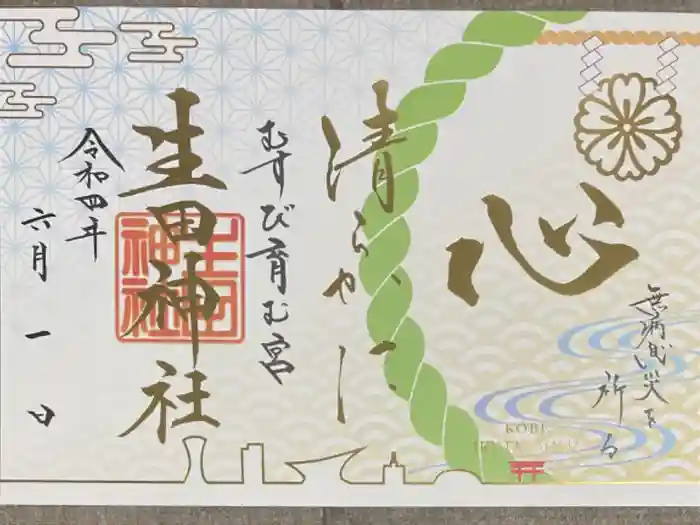 心
無病息災を
祈る
清らかに
むすび育む宮
生田神社
生田神社
令和四年
六月一日
KOBE
IKUTA JINJA